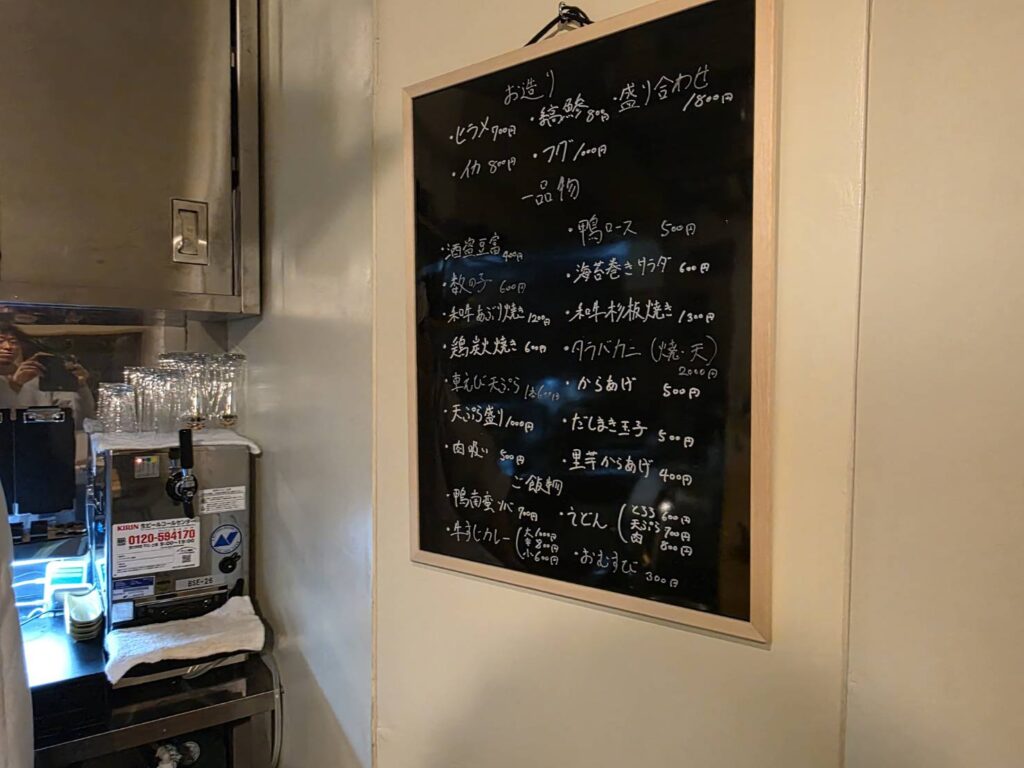 お造り
・ヒラメ 700円 ・縞鯵 800円 ・盛り合わせ 1800円
・イカ 800円 ・フグ 1000円
一品物
・酒盗豆富 400円
・数の子 600円
・和牛あぶり焼き 1200円
・鶏炭火焼き 600円
・車えび天ぷら
・天ぷら盛り 1000円
・肉吸い 500円
・鴨ロース 500円
・海苔巻きサラダ 600円
・和牛杉板焼き 1300円
・タラバカニ (焼・天) 2000円
・からあげ 500円
・だしまき玉子 500円
・里芋からあげ 400円
ご飯物
・鴨南蛮ソバ 700円
・牛すじカレー (大 1000円
中 800円
小 600円
・うどん (とろろ 600円
天ぷら 700円
肉 800円
・おむすび 300円
KIRIN
生ビールコールセンター
0120-594170
9:00~19:00
BSE-26